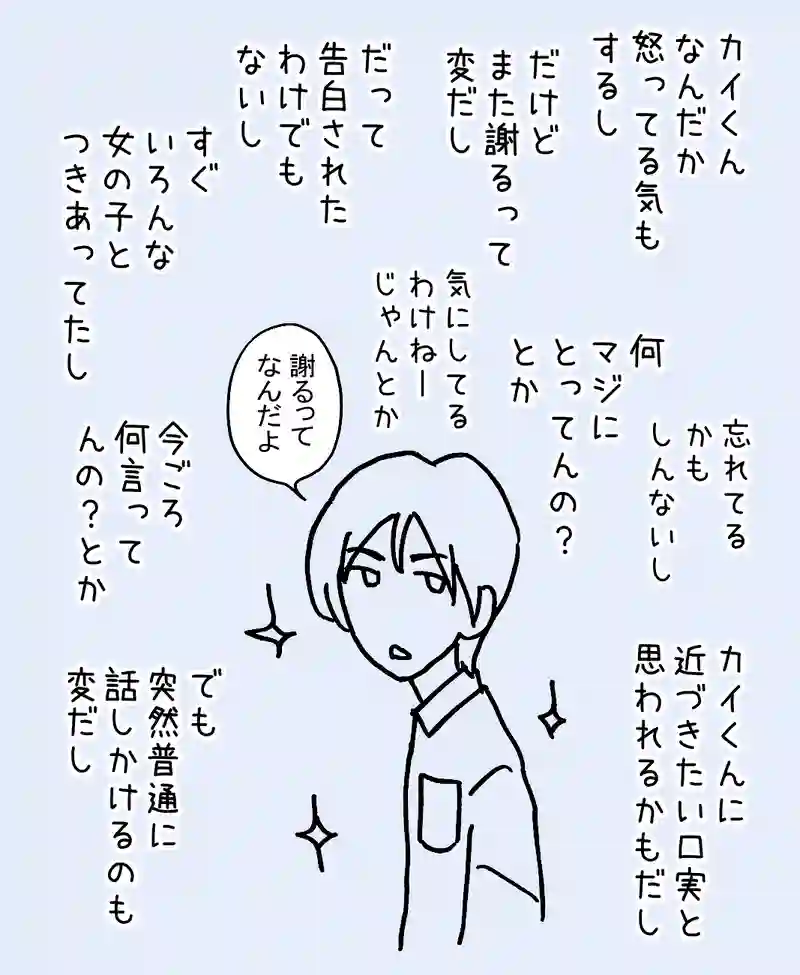 カイくん
なんだか
怒ってる気も
するし
だけど
また謝るって
変だし
だって
告白された
わけでも
ないし
すぐ
いろんな
女の子と
つきあってたし
気にしてる
わけねー
じゃんとか
何
マジに
とってんの?
とか
謝るって
なんだよ
忘れてる
かも
しんないし
今ごろ
何言って
んの?とか
カイくんに
近づきたい口実と
思われるかもだし
でも
突然普通に
話しかけるのも
変だし